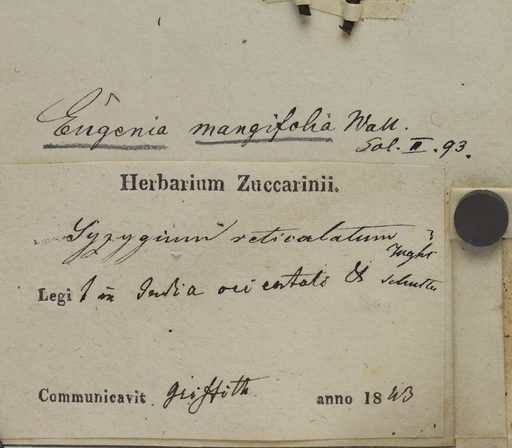 Eugenia mangifolia Wall.
Sol. II. 93.
Herbarium Zuccarinii.
Syzygium reticulatum
Legi t in India orientali &
Communicavit Griffith anno 1843